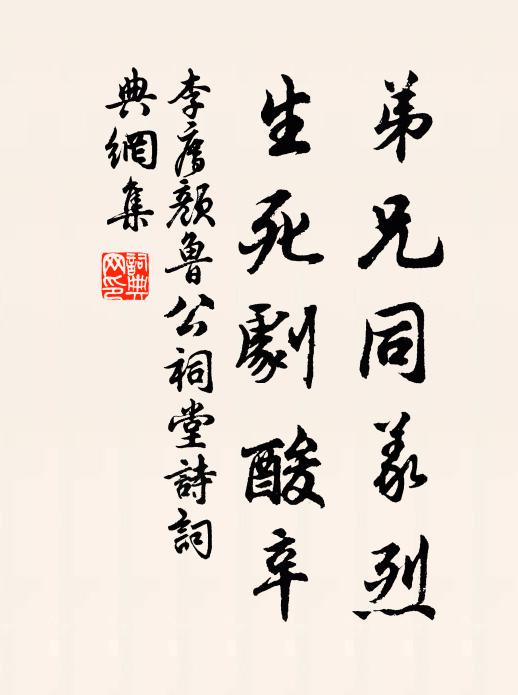 弟兄同義烈
生死劇酸辛
李廌顏魯公祠堂詩詞
典網集
詞典網印